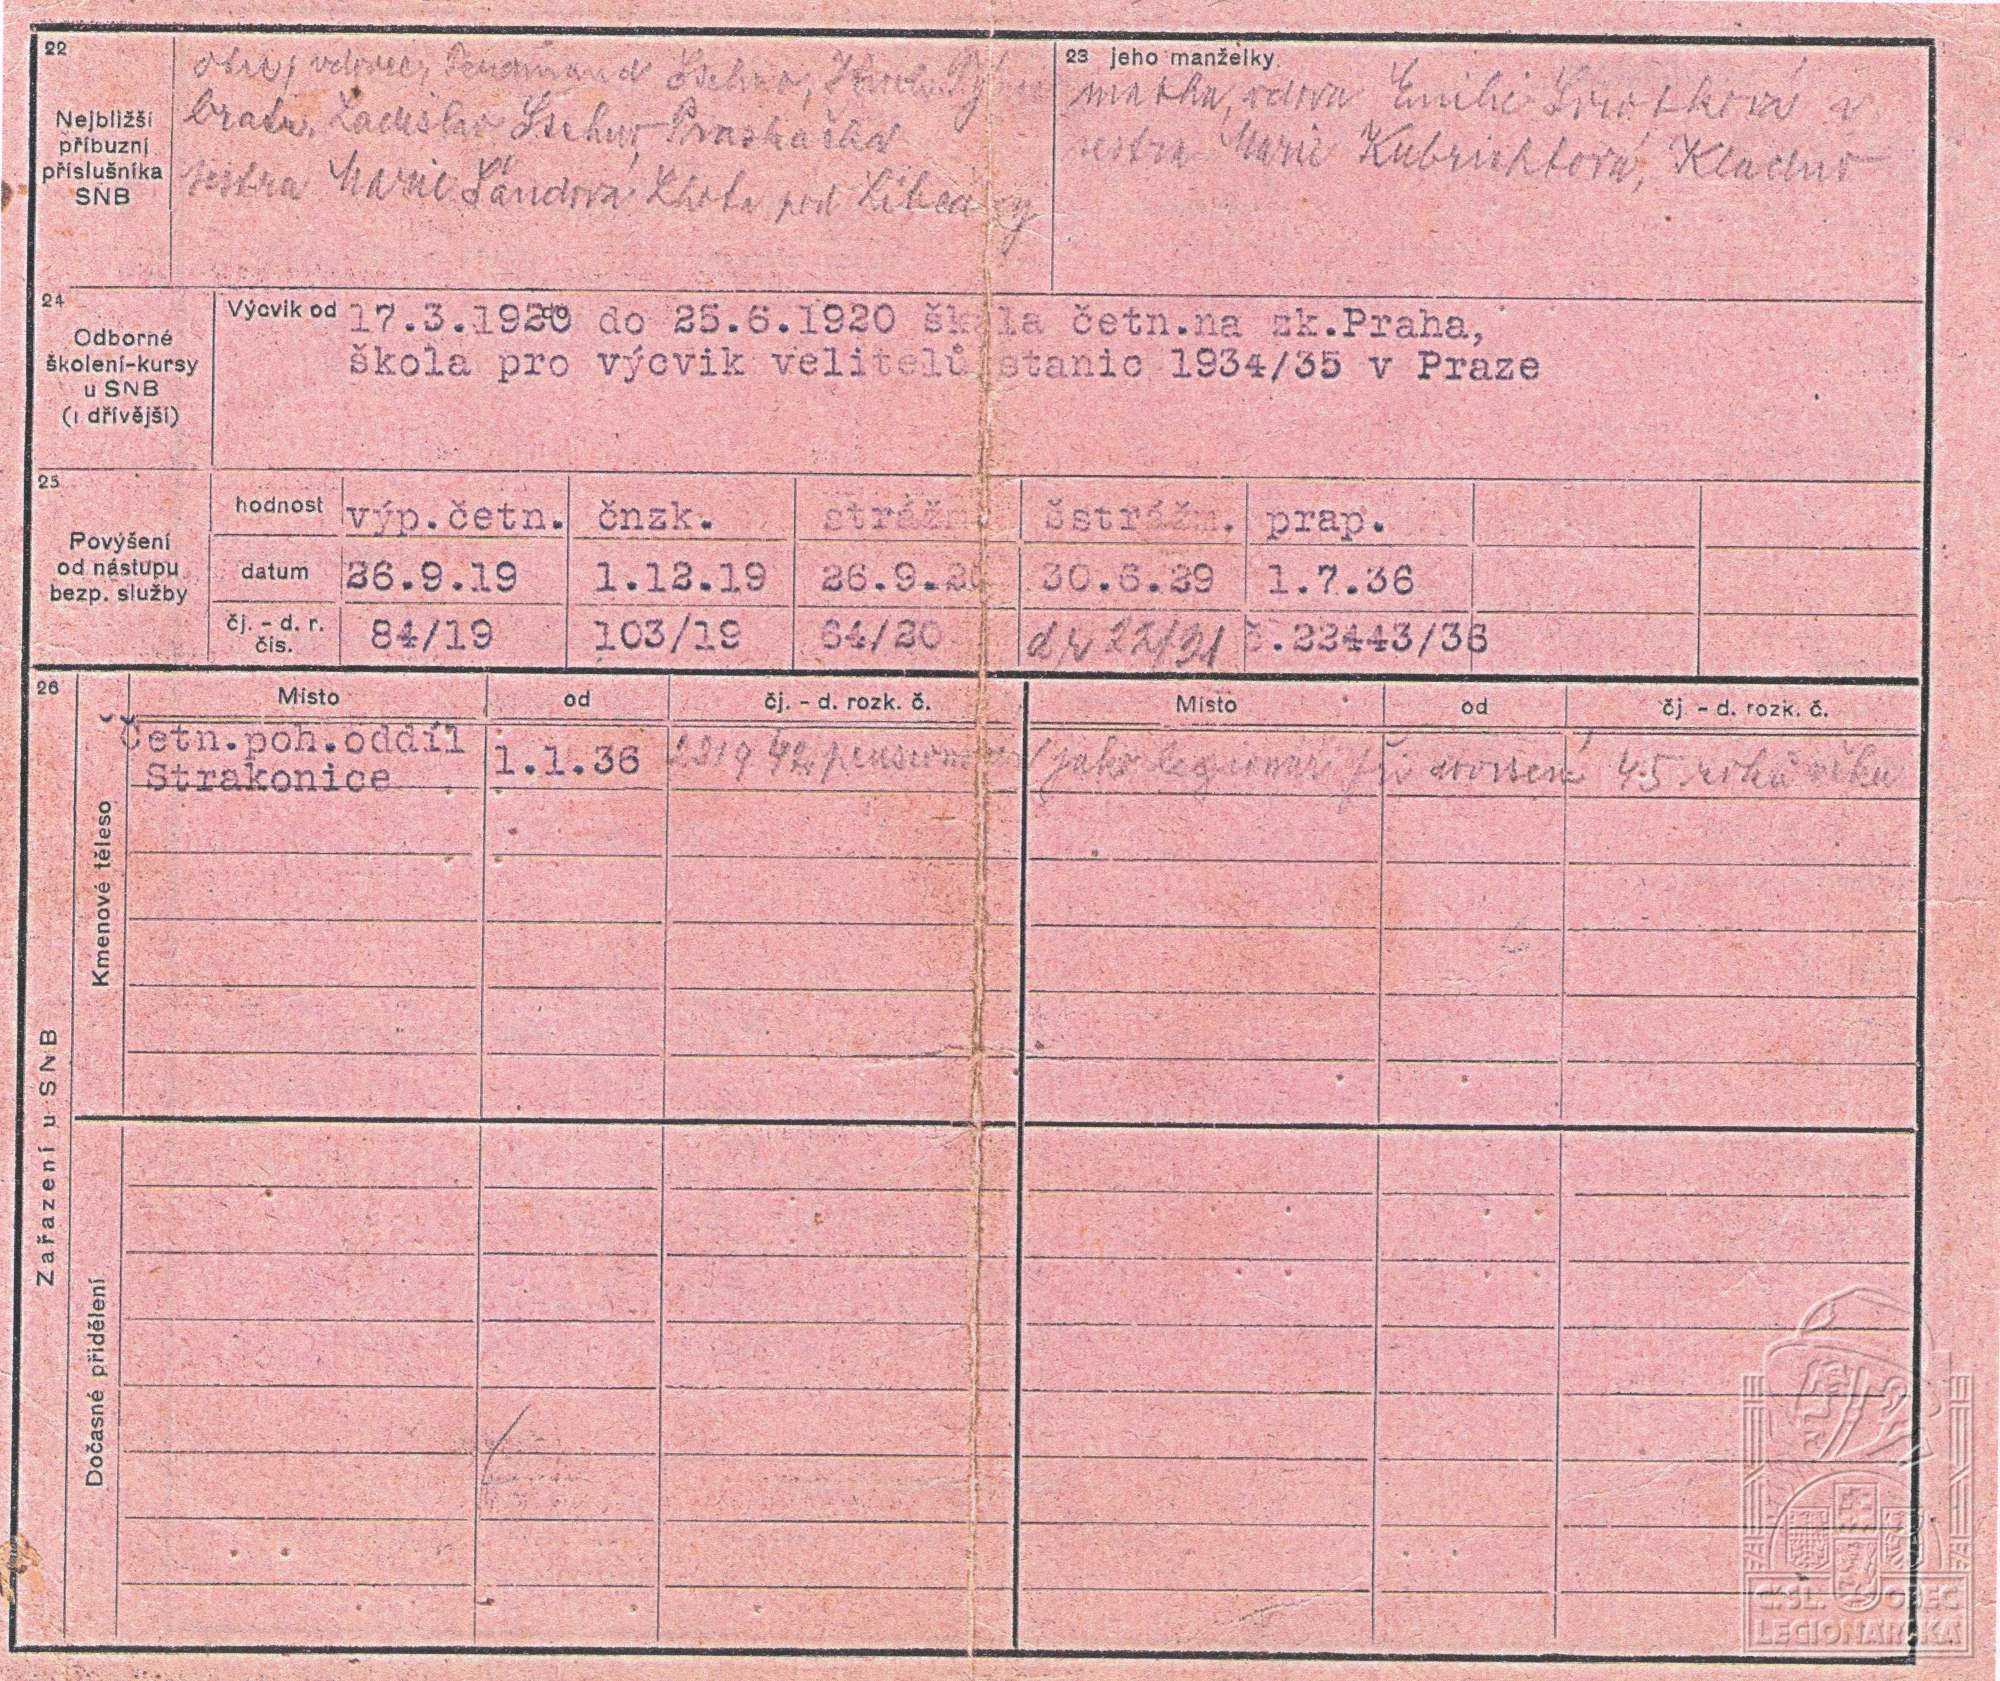 22
Nejbližší
příbuzní
příslušníka
SNB
otec, vdovec, Ferdinand
bratr, Ladislav
sestra Marie Šándová Lhota pod
23 jeho manželky
matka, vdova Emilie
sestra Marie Kubrichtová, Kladno
24
Odborné
školení-kursy
u SNB
(i dřívější)
Výcvik od 17.3.1920 do 25.6.1920 škola četn.na zk.Praha,
škola pro výcvik velitelů stanic 1934/35 v Praze
25
Povýšení
od nástupu
bezp. služby
hodnost výp.četn. čnzk. strážm. šstrážm. prap.
datum 26.9.19 1.12.19 26.9.20 30.6.29 1.7.36
čj. - d. r.
čís.
84/19 103/19 64/20 č.22443/36
26
Zařazení u SNB
Kmenové těleso
Místo od čj. - d. rozk. č. Místo od čj - d. rozk. č.
Četn.poh.oddíl
Strakonice
1.1.36
jako legionář při dovršení 45 roků věku
Dočasné přidělení
ČSL. OBEC
LEGIONÁŘSKÁ